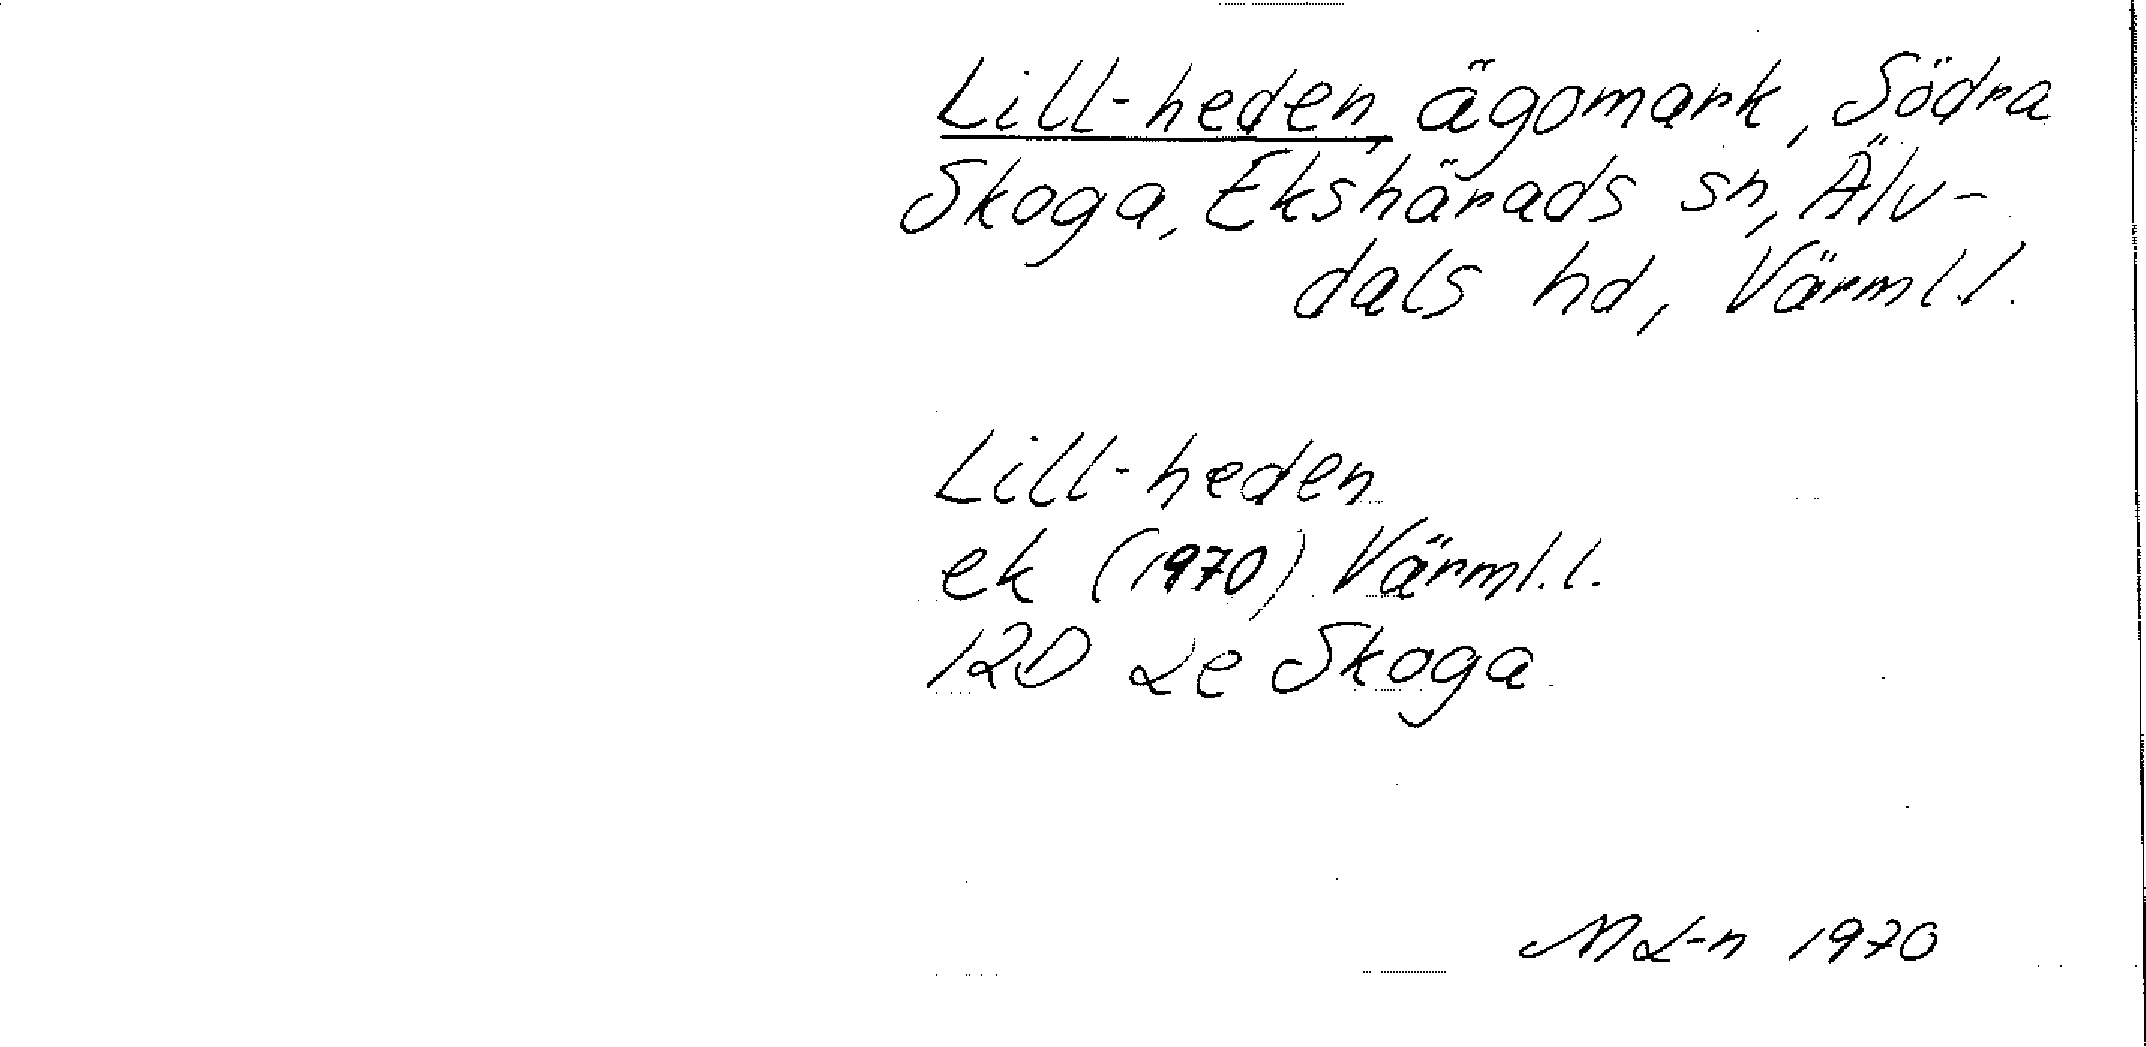 Lill-heden, ägomark, Södra
Skoga, Ekshärads sn, Älv-
dals hd, Värml.l.
Lill-heden
ek (1970) Värml.l.
12D 2e Skoga
ML-n 1970